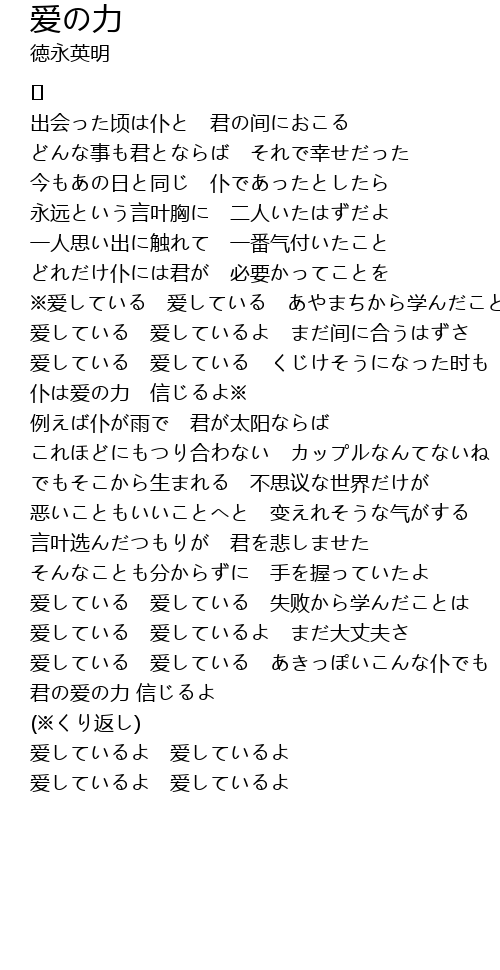 爱の力
徳永英明
[]
出会った顷は仆と　君の间におこる
どんな事も君とならば　それで幸せだった
今もあの日と同じ　仆であったとしたら
永远という言叶胸に　二人いたはずだよ
一人思い出に触れて　一番气付いたこと
どれだけ仆には君が　必要かってことを
※爱している　爱している　あやまちから学んだこと
爱している　爱しているよ　まだ间に合うはずさ
爱している　爱している　くじけそうになった时も
仆は爱の力　信じるよ※
例えば仆が雨で　君が太阳ならば
これほどにもつり合わない　カップルなんてないね
でもそこから生まれる　不思议な世界だけが
恶いこともいいことへと　变えれそうな气がする
言叶选んだつもりが　君を悲しませた
そんなことも分からずに　手を握っていたよ
爱している　爱している　失败から学んだことは
爱している　爱しているよ　まだ大丈夫さ
爱している　爱している　あきっぽいこんな仆でも
君の爱の力 信じるよ
(※くり返し)
爱しているよ　爱しているよ
爱しているよ　爱しているよ